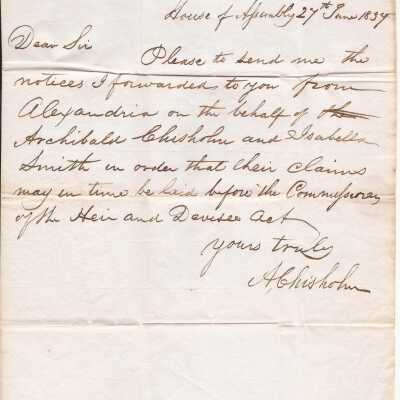 House of Assembly 27th June 1839
Dear Sir
Please to send me the
notices I forwarded to you from
Alexandria on the behalf of the
Archibald Chisholm and Isabella
Smith in order that their claims
may in time be laid before the Commissioners
of the Heir and Devisee Act
yours truly
A Chisholm